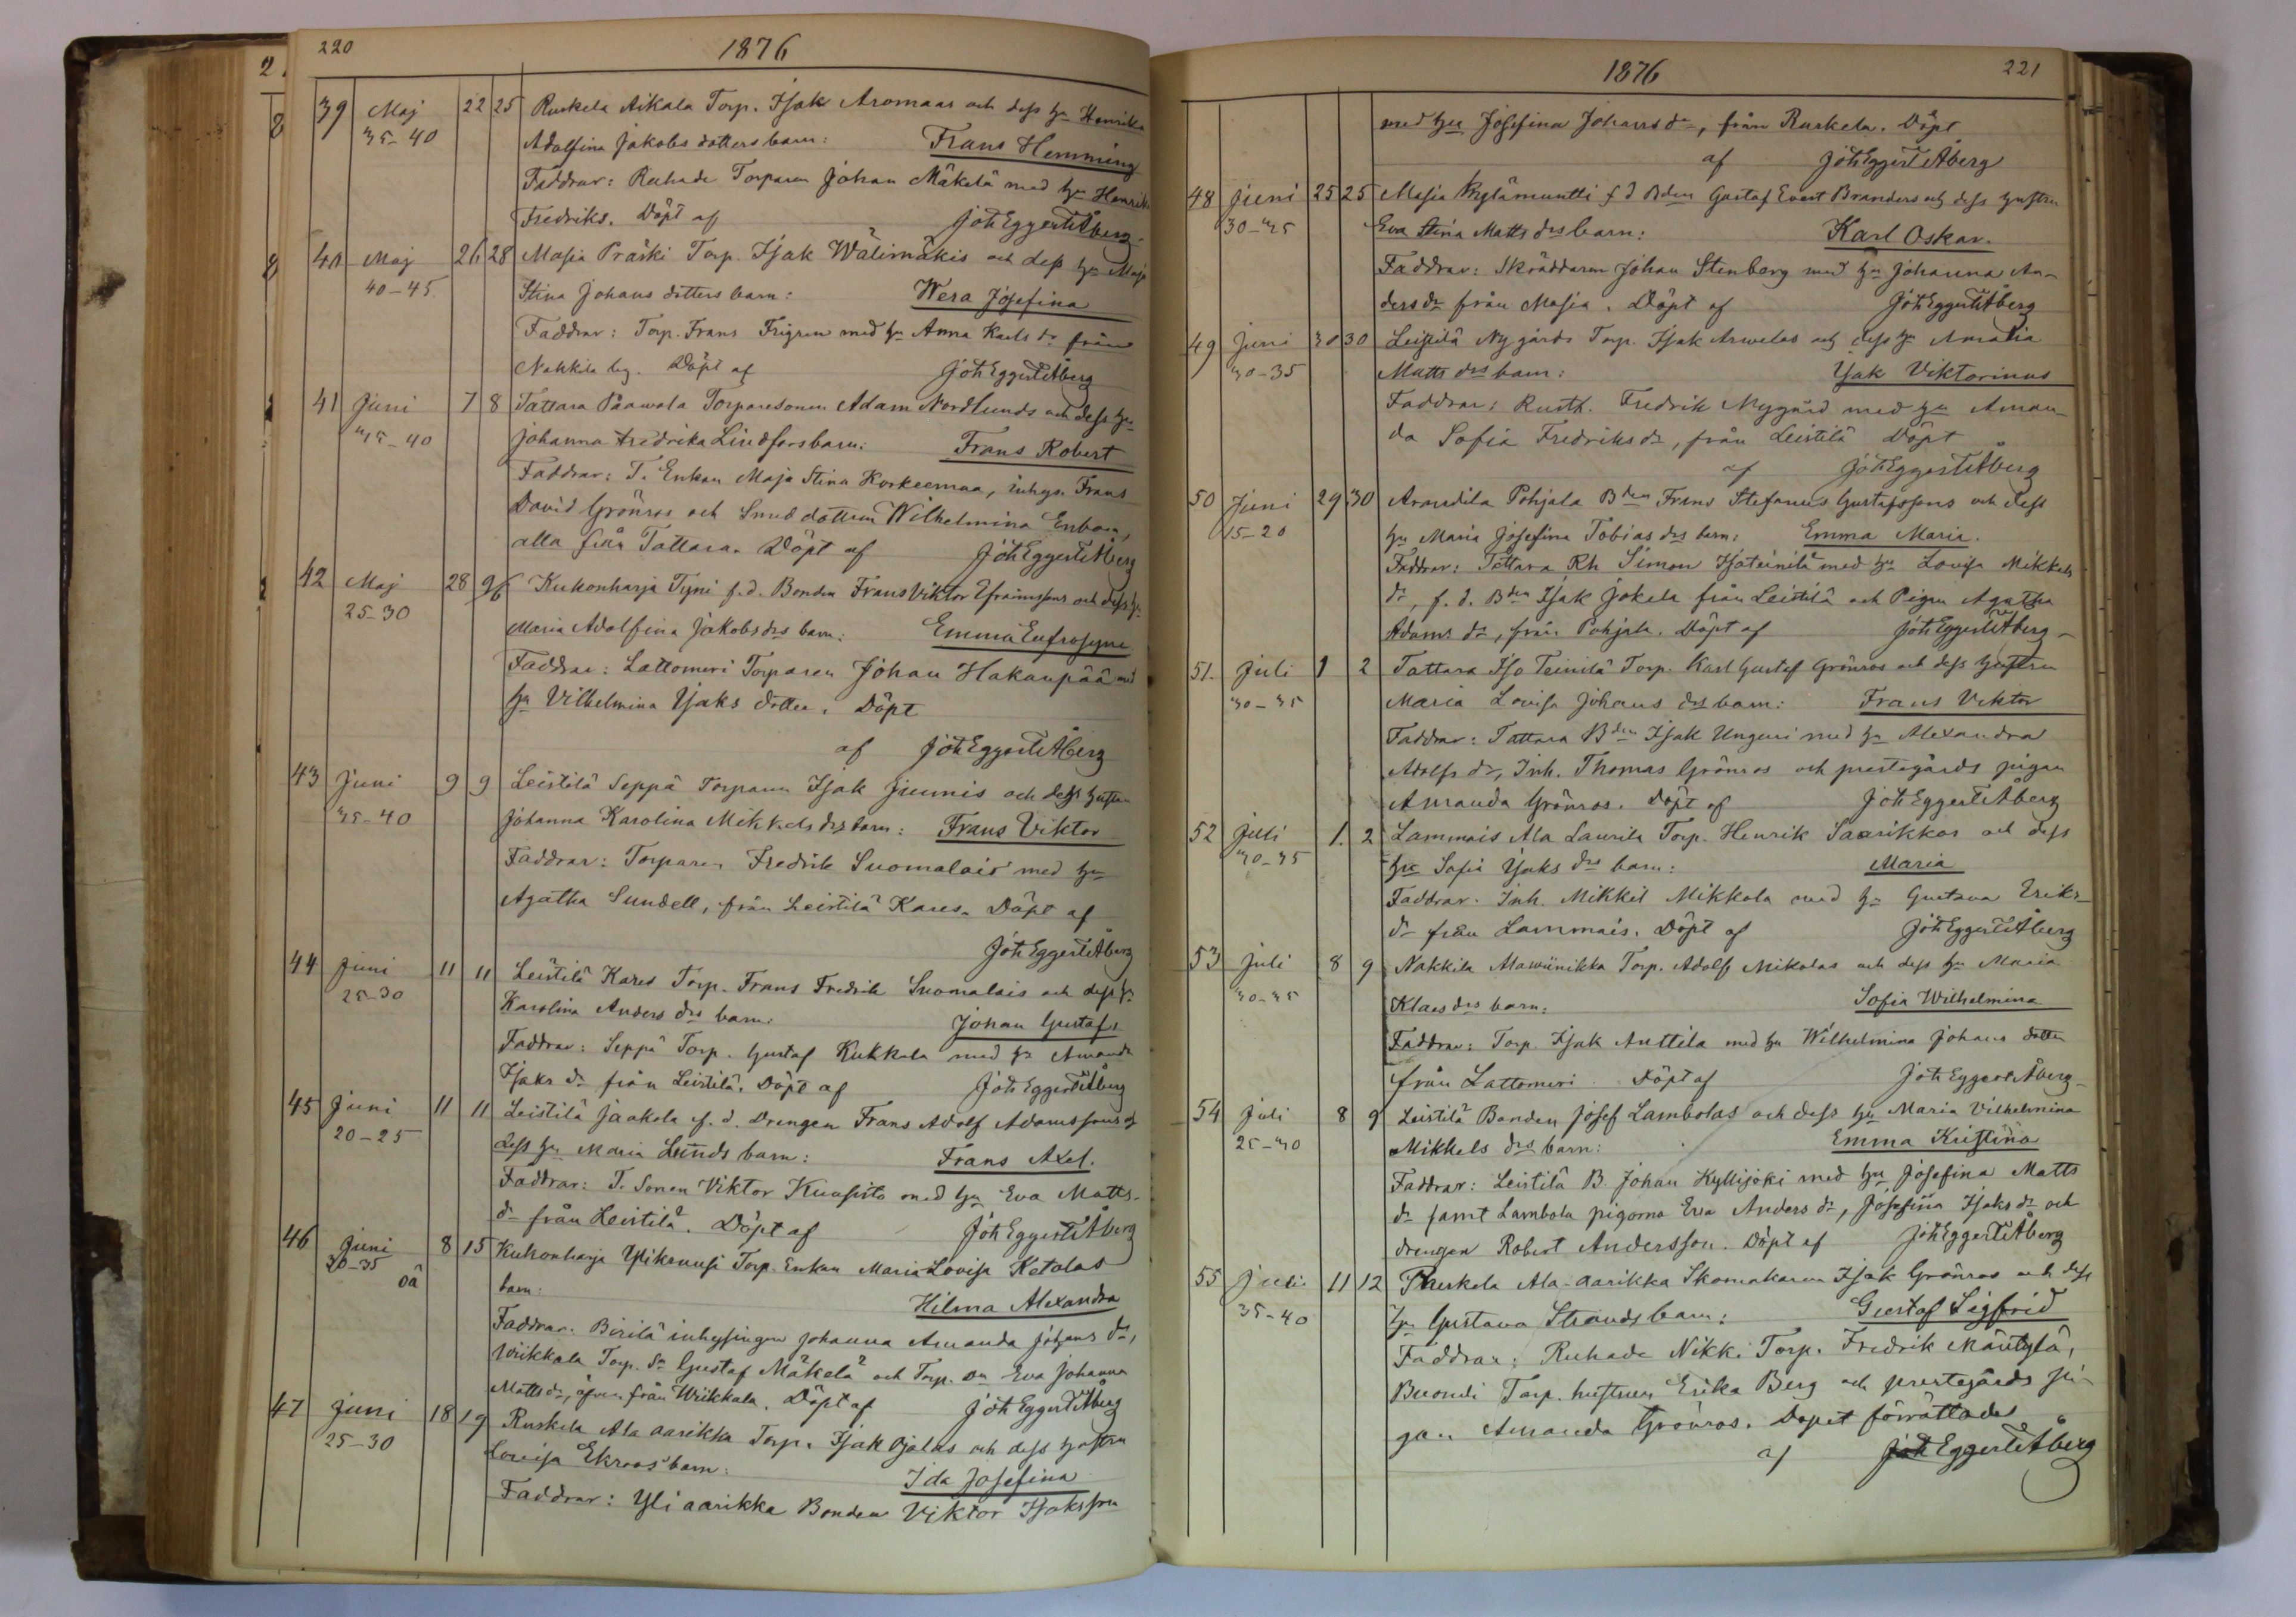 220
1876
39 Maj 22 25 Ruskela Aikala Torp. Isak Aromaas och dess hu Henrika
35-40 Adolfina Jakobs dotters barn: Frans Hemming
Faddrar: Ruhade Torparen Johan Mäkelä med hu Henrika
Fredriks. Döpt af Joh Eggert Åberg
40 Maj 26 28 Masia Präski Torp. Isak Wälimäkis och dess hu Maja
40-45. Stina Johans dotters barn: Wera Josefina
Faddrar: Torp. Frans Frigren med hu Anna Karls dr från
Nakkila by. Döpt af Joh Eggert Åberg
41 Juni 7 8 Tattara Paawola Torparesonen Adam Nordlunds och dess hu
35-40 Johanna Fredrika Lindfors barn: Frans Robert
Faddrar: T. Enkan Maja Stina Korkeemaa, inhys. Frans
David Grönros och Smed dottren Wilhelmina Enbom,
alla från Tattara. Döpt af Joh Eggert Åberg
42 Maj 28 9/6 Kukonharja Tyni f.d. Bonden Frans Viktor Efraimssons och dess hu
25-30 Maria Adolfina Jakobs drs barn: Emma Eufrosyne
Faddrar: Lattomeri Torparen Johan Hakanpää med
hu Vilhelmina Isaks dotter. Döpt
af Joh Eggert Åberg
43 Juni 9 9 Leistilä Seppä Torparen Isak Junnis och dess hustru
35-40 Johanna Karolina Mikkels drs barn: Frans Viktor
Faddrar: Torparen Fredrik Suomalais med hu
Agatha Sundell, från Leistilä Kares. Döpt af
Joh Eggert Åberg
44 Juni 11 11 Leistilä Kares Torp. Frans Fredrik Suomalais och dess hu
25-30 Karolina Anders drs barn: Johan Gustaf
Faddrar: Seppä Torp. Gustaf Kukkola med hu Amanda
Isaks dr från Leistilä. Döpt af Joh Eggert Åberg
45 Juni 11 11 Leistilä Jaakola f.d. Drengen Frans Adolf Adamssons och
20-25 dess hu Maria Lunds barn: Frans Axel.
Faddrar: T. Sonen Viktor Kuusisto med hu Eva Matts-
dr från Leistilä. Döpt af Joh Eggert Åberg
46 Juni 8 15 Kukonharja Ylikonusi Torp. Enkan Maria Lovisa Ketolas
30-35 oä barn: Hilma Alexandra
Faddrar. Birilä inhysingen Johanna Amanda Johans dr,
Wiikkala Torp. Sn Gustaf Mäkelä och Torp. Dn Eva Johanna
Matts dr, äfven från Wiikkala. Döpt af Joh Eggert Åberg
47 Juni 18 19 Ruskela Ala aarikka Torp. Isak Ojalas och dess hustru
25-30 Lovisa Ekroos barn: Ida Josefina
Faddrar: Yli aarikka Bonden Viktor Isaksson
1876
221
med hu Josefina Johans dr, från Ruskela. Döpt
af Joh Eggert Åberg
48 Juni 25 25 Masia Kylämuntti f d Bden Gustaf Evert Branders och dess hustru
30-35 Eva Stina Matts drs barn: Karl Oskar.
Faddrar: Skräddaren Johan Stenberg med hu Johanna An-
ders dr från Masia. Döpt af Joh Eggert Åberg
49 Juni 30 30 Leistilä Nygårds Torp. Isak Arwelas och dess hu Amalia
30-35 Matts drs barn: Isak Viktorinus
Faddrar: Rusth. Fredrik Nygård med hu Aman-
da Sofia Fredriks dr, från Leistilä Döpt
af Joh Eggert Åberg
50 Juni 29 30 Arandila Pohjala Bden Frans Stefanus Gustafssons och dess
15-20 hu Maria Josefina Tobias drs barn: Emma Maria.
Faddrar: Tattara Rh Simon Isoteinilä med hu Lovisa Mikkels
dr, f.d. Bden Isak Jokela från Leistilä och Pigan Agatha
Adams dr, från Pohjala. Döpt af Joh Eggert Åberg
51. Juli 1 2 Tattara Iso Teinilä Torp. Karl Gustaf Grönros och dess hustru
30-35 Maria Lovisa Johans drs barn: Frans Viktor
Faddrar: Tattara Bden Isak Unguri med hu Alexandra
Adolfs dr, Inh. Thomas Grönros och prestegårds pigan
Amanda Grönros. Döpt af Joh Eggert Åberg
52 Juli 1. 2 Lammais Ala Laurila Torp. Henrik Saarikkos och dess
30-35 hu Sofia Isaks drs barn: Maria
Faddrar. Inh. Mikkel Mikkola med hu Gustava Eriks-
dr från Lammais. Döpt af Joh Eggert Åberg
53 Juli 8 9 Nakkila Alawiinikka Torp. Adolf Mikolas och dess hu Maria
30-35 Klaes drs barn: Sofia Wilhelmina
Faddrar: Torp. Isak Anttila med hu Wilhelmina Johans dotter
från Lattomeri Döpt af Joh Eggert Åberg
54 Juli 8 9 Leistilä Bonden Josef Lambolas och dess hu Maria Vilhelmina
25-30 Mikkels drs barn: Emma Kristina
Faddrar: Leistilä B. Johan Kyllijoki med hu Josefina Matts
dr samt Lambola pigorna Eva Anders dr, Josefina Isaks dr och
drengen Robert Andersson. Döpt af Joh Eggert Åberg
55 Juli 11 12 Ruskela Ala-aarikka Skomakaren Isak Grönros och dess
35-40 hu Gustava Strands barn: Gustaf Sigfrid
Faddrar: Ruhade Nikki Torp. Fredrik Mäntylä,
Buondi Torp. hustrun Erika Berg och prestegårds pi-
gan Amanda Grönros. Dopet förrättades
af Joh Eggert Åberg